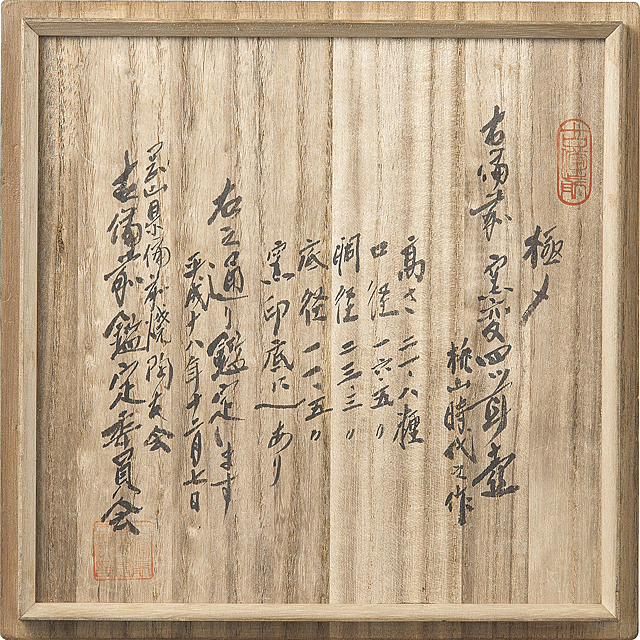 古備前
極メ
古備前 窯変四耳壷
桃山時代之作
高さ 二一・八糎
口径 一六・五〃
胴径 二三・三〃
底径 一一・五〃
窯印底に一あり
右之通り鑑定します
平成十八年十二月七日
岡山県備前焼陶友会
古備前鑑定委員会